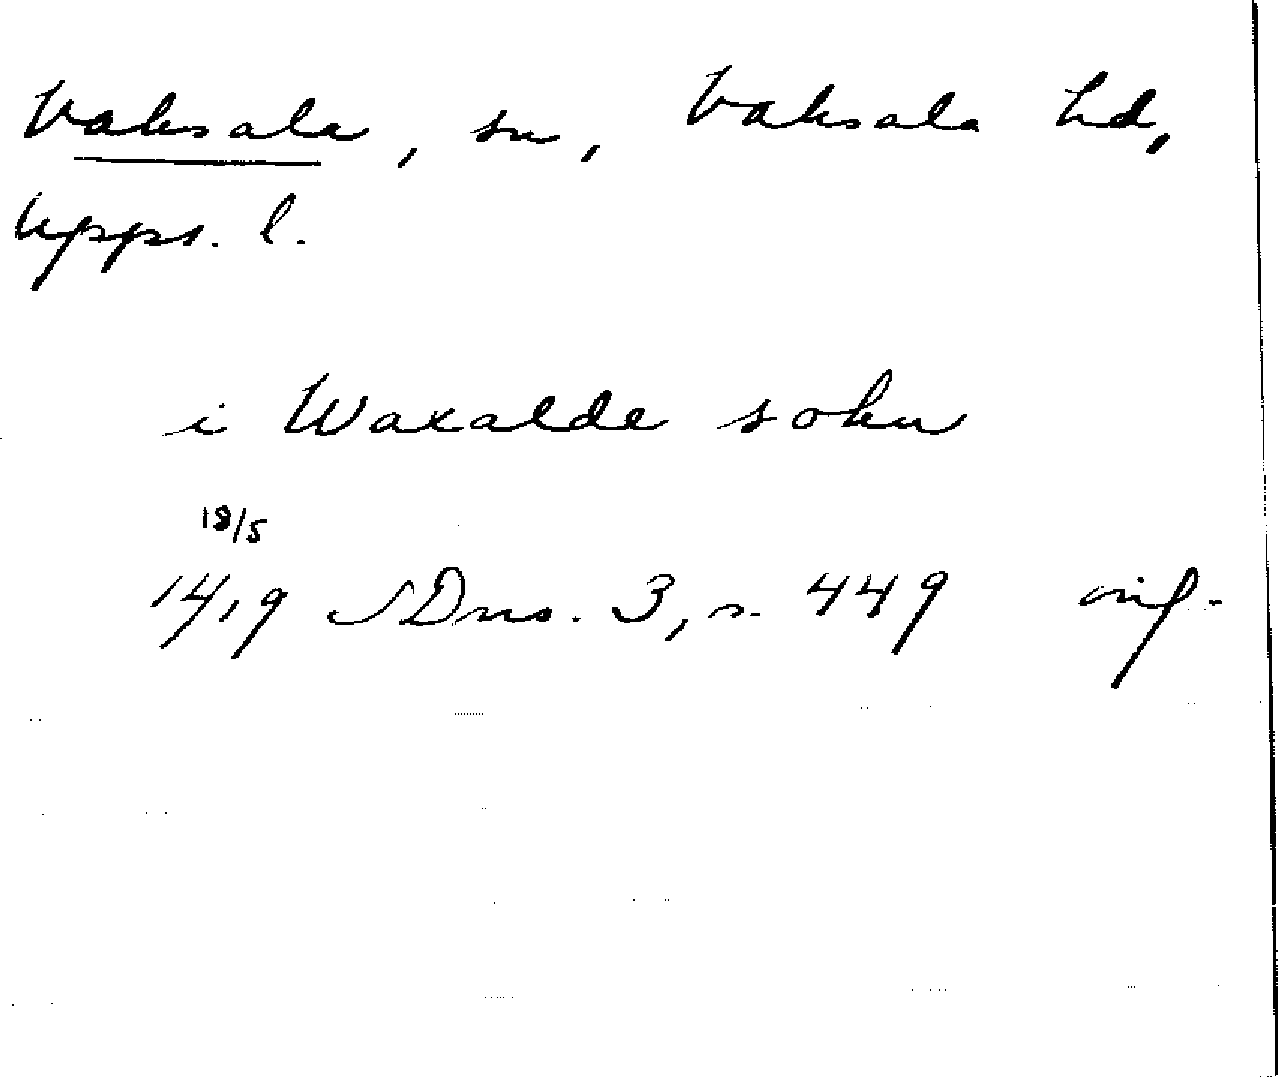 Vaksala, sn, Vaksala hd,
Upps. l.
i Waxalde sokn
18/5
1419 SDns. 3, s. 449 orig.